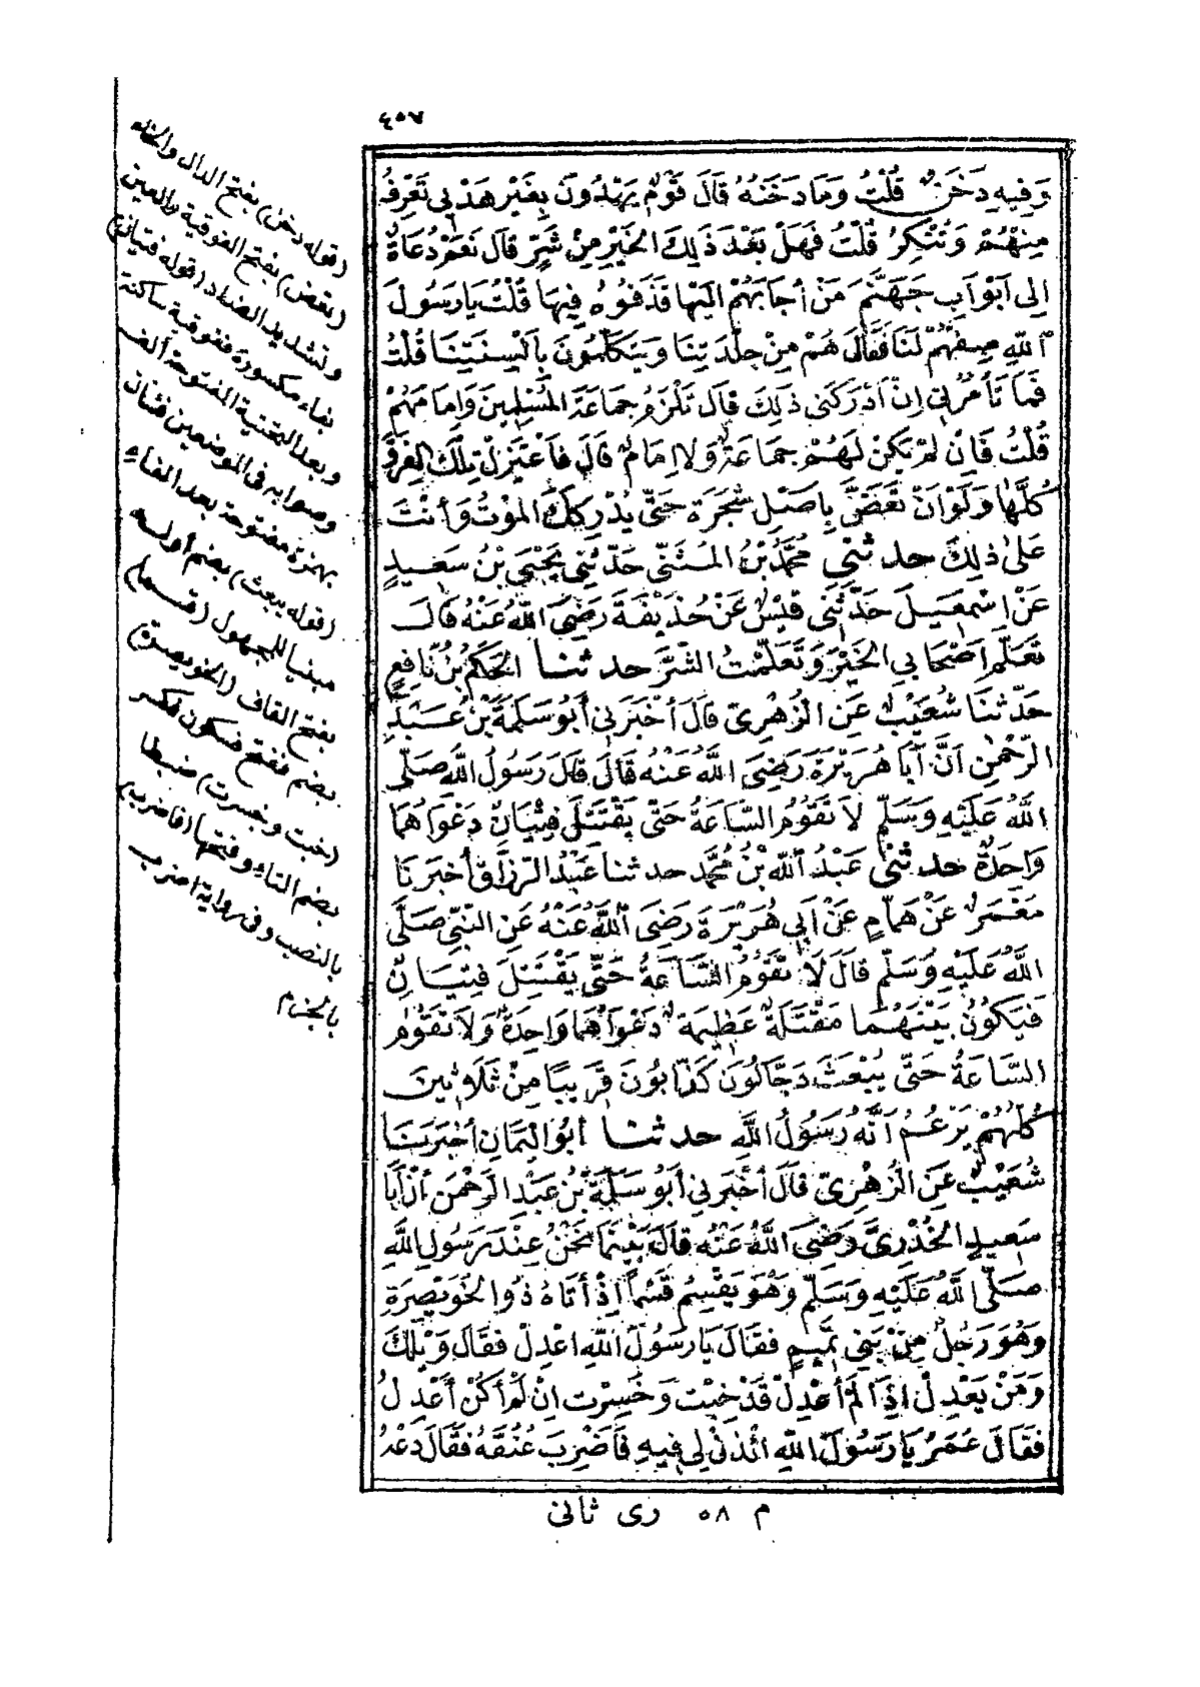 ٤٥٧
وَفِيهِ دَخَنٌ قُلْتُ وَمَا دَخَنُهُ قَالَ قَوْمٌ يَهْدُونَ بِغَيْرِ هَدْيِي تَعْرِفُ
مِنْهُمْ وَتُنْكِرُ قُلْتُ فَهَلْ بَعْدَ ذَلِكَ الْخَيْرِ مِنْ شَرٍّ قَالَ نَعَمْ دُعَاةٌ
إِلَى أَبْوَابِ جَهَنَّمَ مَنْ أَجَابَهُمْ إِلَيْهَا قَذَفُوهُ فِيهَا قُلْتُ يَا رَسُولَ
اللّٰهِ صِفْهُمْ لَنَا فَقَالَ هُمْ مِنْ جِلْدَتِنَا وَيَتَكَلَّمُونَ بِأَلْسِنَتِنَا قُلْتُ
فَمَا تَأْمُرُنِي إِنْ أَدْرَكَنِي ذَلِكَ قَالَ تَلْزَمُ جَمَاعَةَ الْمُسْلِمِينَ وَإِمَامَهُمْ
قُلْتُ فَإِنْ لَمْ يَكُنْ لَهُمْ جَمَاعَةٌ وَلَا إِمَامٌ قَالَ فَاعْتَزِلْ تِلْكَ الْفِرَقَ
كُلَّهَا وَلَوْ أَنْ تَعَضَّ بِأَصْلِ شَجَرَةٍ حَتَّى يُدْرِكَكَ الْمَوْتُ وَأَنْتَ
عَلَى ذٰلِكَ حدثني مُحَمَّدُ بْنُ الْمُثَنَّى حَدَّثَنِي يَحْيَى بْنُ سَعِيدٍ
عَنْ إِسْمَعِيلَ حَدَّثَنِي قَيْسٌ عَنْ حُذَيْفَةَ رَضِيَ اللّٰهُ عَنْهُ قَالَ
تَعَلَّمَ أَصْحَابِي الْخَيْرَ وَتَعَلَّمْتُ الشَّرَّ حدثنا الْحَكَمُ بْنُ نَافِعٍ
حَدَّثَنَا شُعَيْبٌ عَنِ الزُّهْرِيِّ قَالَ أَخْبَرَنِي أَبُو سَلَمَةَ بْنُ عَبْدِ
الرَّحْمٰنِ أَنَّ أَبَا هُرَيْرَةَ رَضِيَ اللّٰهُ عَنْهُ قَالَ قَالَ رَسُولُ اللّٰهِ صَلَّى
اللّٰهُ عَلَيْهِ وَسَلَّمَ لَا تَقُومُ السَّاعَةُ حَتَّى يَقْتَتِلَ فِتْيَانِ دَعْوَاهُمَا
وَاحِدَةٌ حدثني عَبْدُ اللّٰهِ بْنُ مُحَمَّد حدثنا عَبْدُ الرَّزَّاقِ أَخْبَرَنَا
مَعْمَرٌ عَنْ هَمَّامٍ عَنْ أَبِي هُرَيْرَةَ رَضِيَ اللّٰهُ عَنْهُ عَنِ النَّبِيِّ صَلَّى
اللّٰهُ عَلَيْهِ وَسَلَّمَ قَالَ لَا تَقُومُ السَّاعَةُ حَتَّى يَقْتَتِلَ فِتْيَانِ
فَيَكُونُ بَيْنَهُمَا مَقْتَلَةٌ عَظِيمَةٌ دَعْوَاهُمَا وَاحِدَةٌ وَلَا تَقُومُ
السَّاعَةُ حَتَّى يُبْعَثَ دَجَّالُونَ كَذَّابُونَ قَرِيبًا مِنْ ثَلَاثِينَ
كُلُّهُمْ يَزْعُمُ أَنَّهُ رَسُولُ اللّٰهِ حدثنا أَبُو الْيَمَانِ أَخْبَرَنَا
شُعَيْبٌ عَنِ الزُّهْرِيِّ قَالَ أَخْبَرَنِي أَبُو سَلَمَةَ بْنُ عَبْدِ الرَّحْمَنِ أَنَّ أَبَا
سَعِيدٍ الْخُدْرِيَّ رَضِيَ اللّٰهُ عَنْهُ قَالَ بَيْنَمَا نَحْنُ عِنْدَ رَسُولِ اللّٰهِ
صَلَّى اللّٰهُ عَلَيْهِ وَسَلَّمَ وَهُوَ يَقْسِمُ قَسْمًا إِذْ أَتَاهُ ذُو الْخُوَيْصِرَةِ
وَهُوَ رَجُلٌ مِنْ بَنِي تَمِيمٍ فَقَالَ يَا رَسُولَ اللّٰهِ اعْدِلْ فَقَالَ وَيْلَكَ
وَمَنْ يَعْدِلُ إِذَا لَمْ أَعْدِلْ قَدْ خِبْتَ وَخَسِرْتَ إِنْ لَمْ أَكُنْ أَعْدِلُ
فَقَالَ عُمَرُ يَا رَسُولَ اللّٰهِ ائْذَنْ لِي فِيهِ فَأَضْرِبَ عُنُقَهُ فَقَالَ دَعْهُ
م ٥٨ رى ثانى
(قوله دخن) بفتح الدال والخاء
(تعض) بفتح الفوقية والعين
وتشديد الضاد (قوله فتيان)
بفاء مكسورة ففوقية ساكنة
وبعد التحتية المفتوحة ألف
وصوابه فى الموضعين فئتان
بهمزة مفتوحة بعد الفاء
(قوله يبعث) بضم أوله
مبنيا للمجهول (قسما)
بفتح القاف (الخويصرة)
بضم ففتح فسكون فكسر
(خبت وخسرت) ضبطا
بضم التاء وفتحها (فاضرب)
بالنصب وفى رواية اضرب
بالجزم